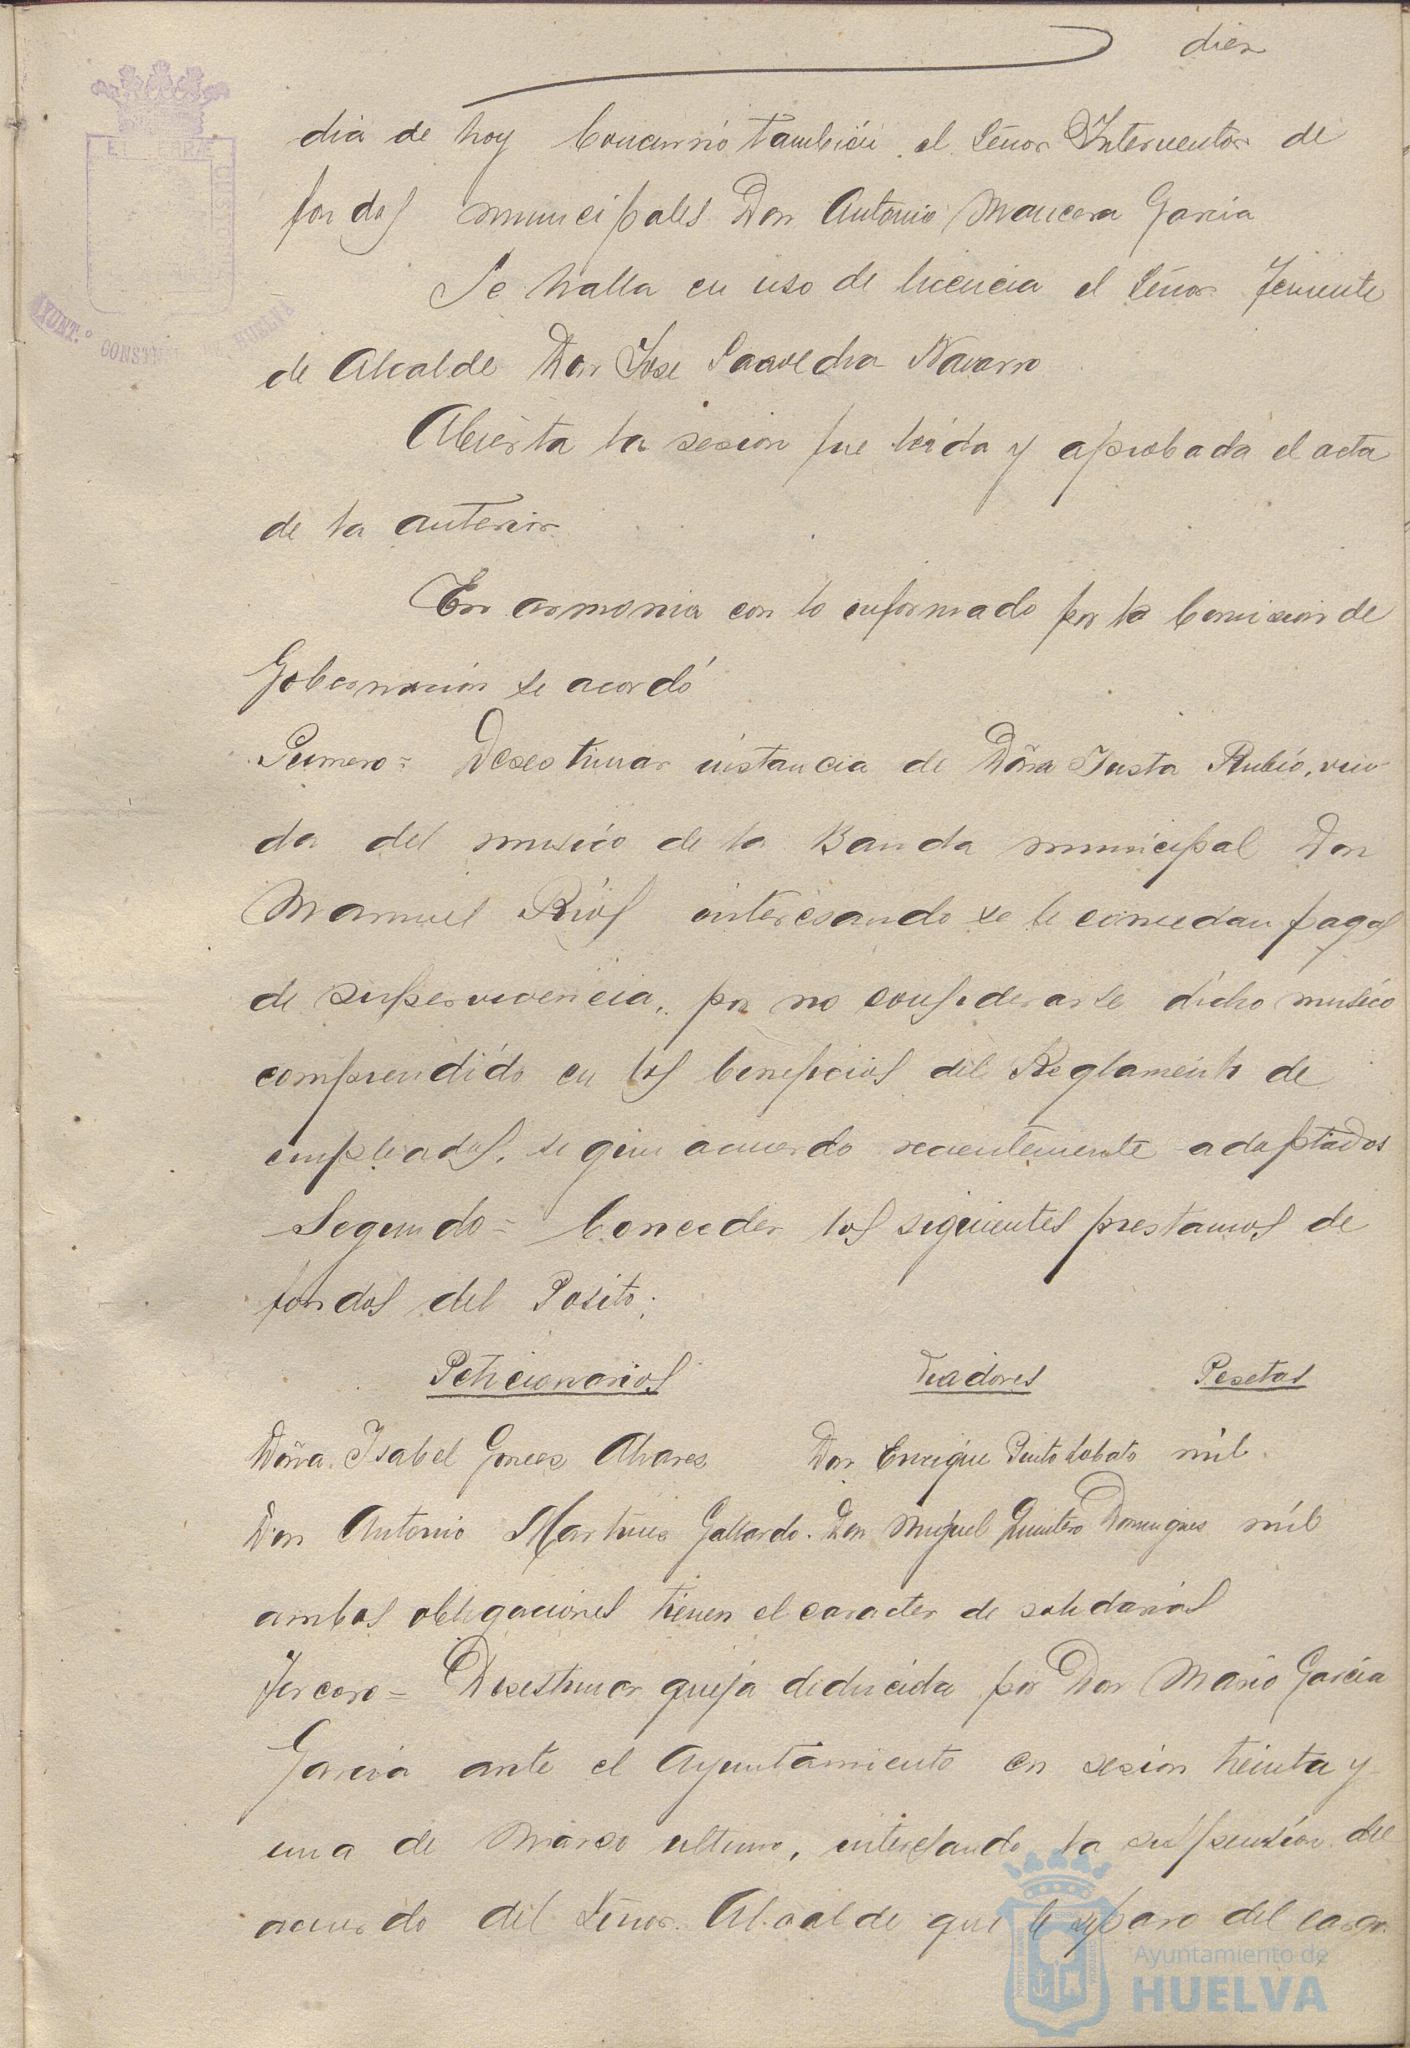 diez
dia de hoy Concurrió tambien el Señor Interventor de
fondos municipales Don Antonio Mancera Garcia
Se halla en uso de licencia el Señor Teniente
de Alcalde Don Jose Saavedra Navarro
Abierta la sesion fue leida y aprobada el acta
de la anterior.
En armonia con lo informado por la Comision de
Gobernación se acordó
Primero= Desestimar instancia de Doña Justa Rubio, viu-
da del musico de la Banda municipal Don
Manuel Rios interesando se le concedan pagas
de supervivencia, por no considerarse dicho musico
comprendido en los beneficios del Reglamento de
empleados, segun acuerdo recientemente adoptados
Segundo= Conceder los siguientes prestamos de
fondos del Posito:
Peticionarios Fiadores Pesetas
Doña Isabel Alvarez Don Enrique Pinto Lobato mil.
Don Antonio Martinez Gallardo. Don Miguel Quintero Dominguez mil
ambas obligaciones tienen el caracter de solidarias
Tercero= Desestimar queja deducida por Don Mario Garcia
Garcia ante el Ayuntamiento en sesion treinta y
una de Marzo ultimo, interesando la suspensión del
acuerdo del Señor Alcalde que le separo del cargo
AYUNT.º CONST HUELVA
Ayuntamiento de
HUELVA